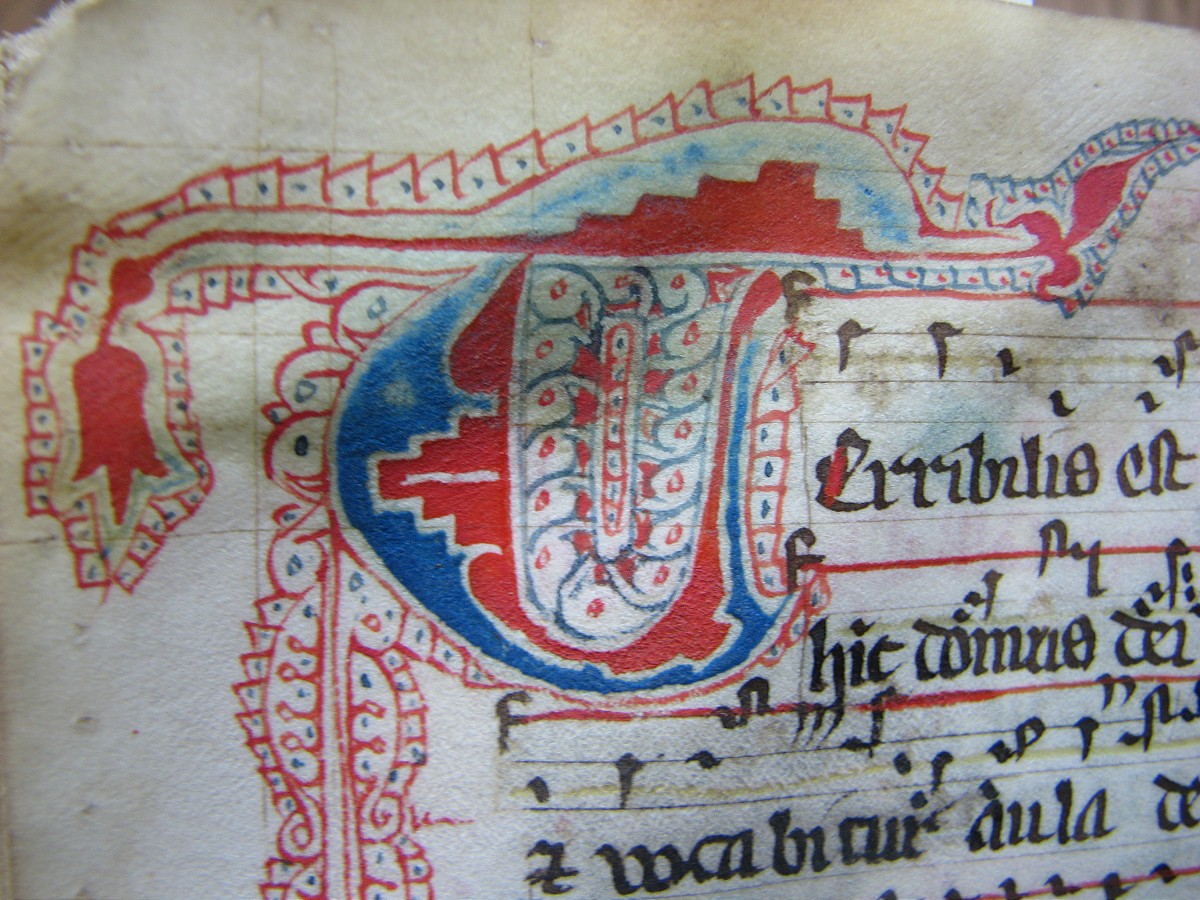 Terribilis est
hic domus dei
⁊ vocabitur aula de